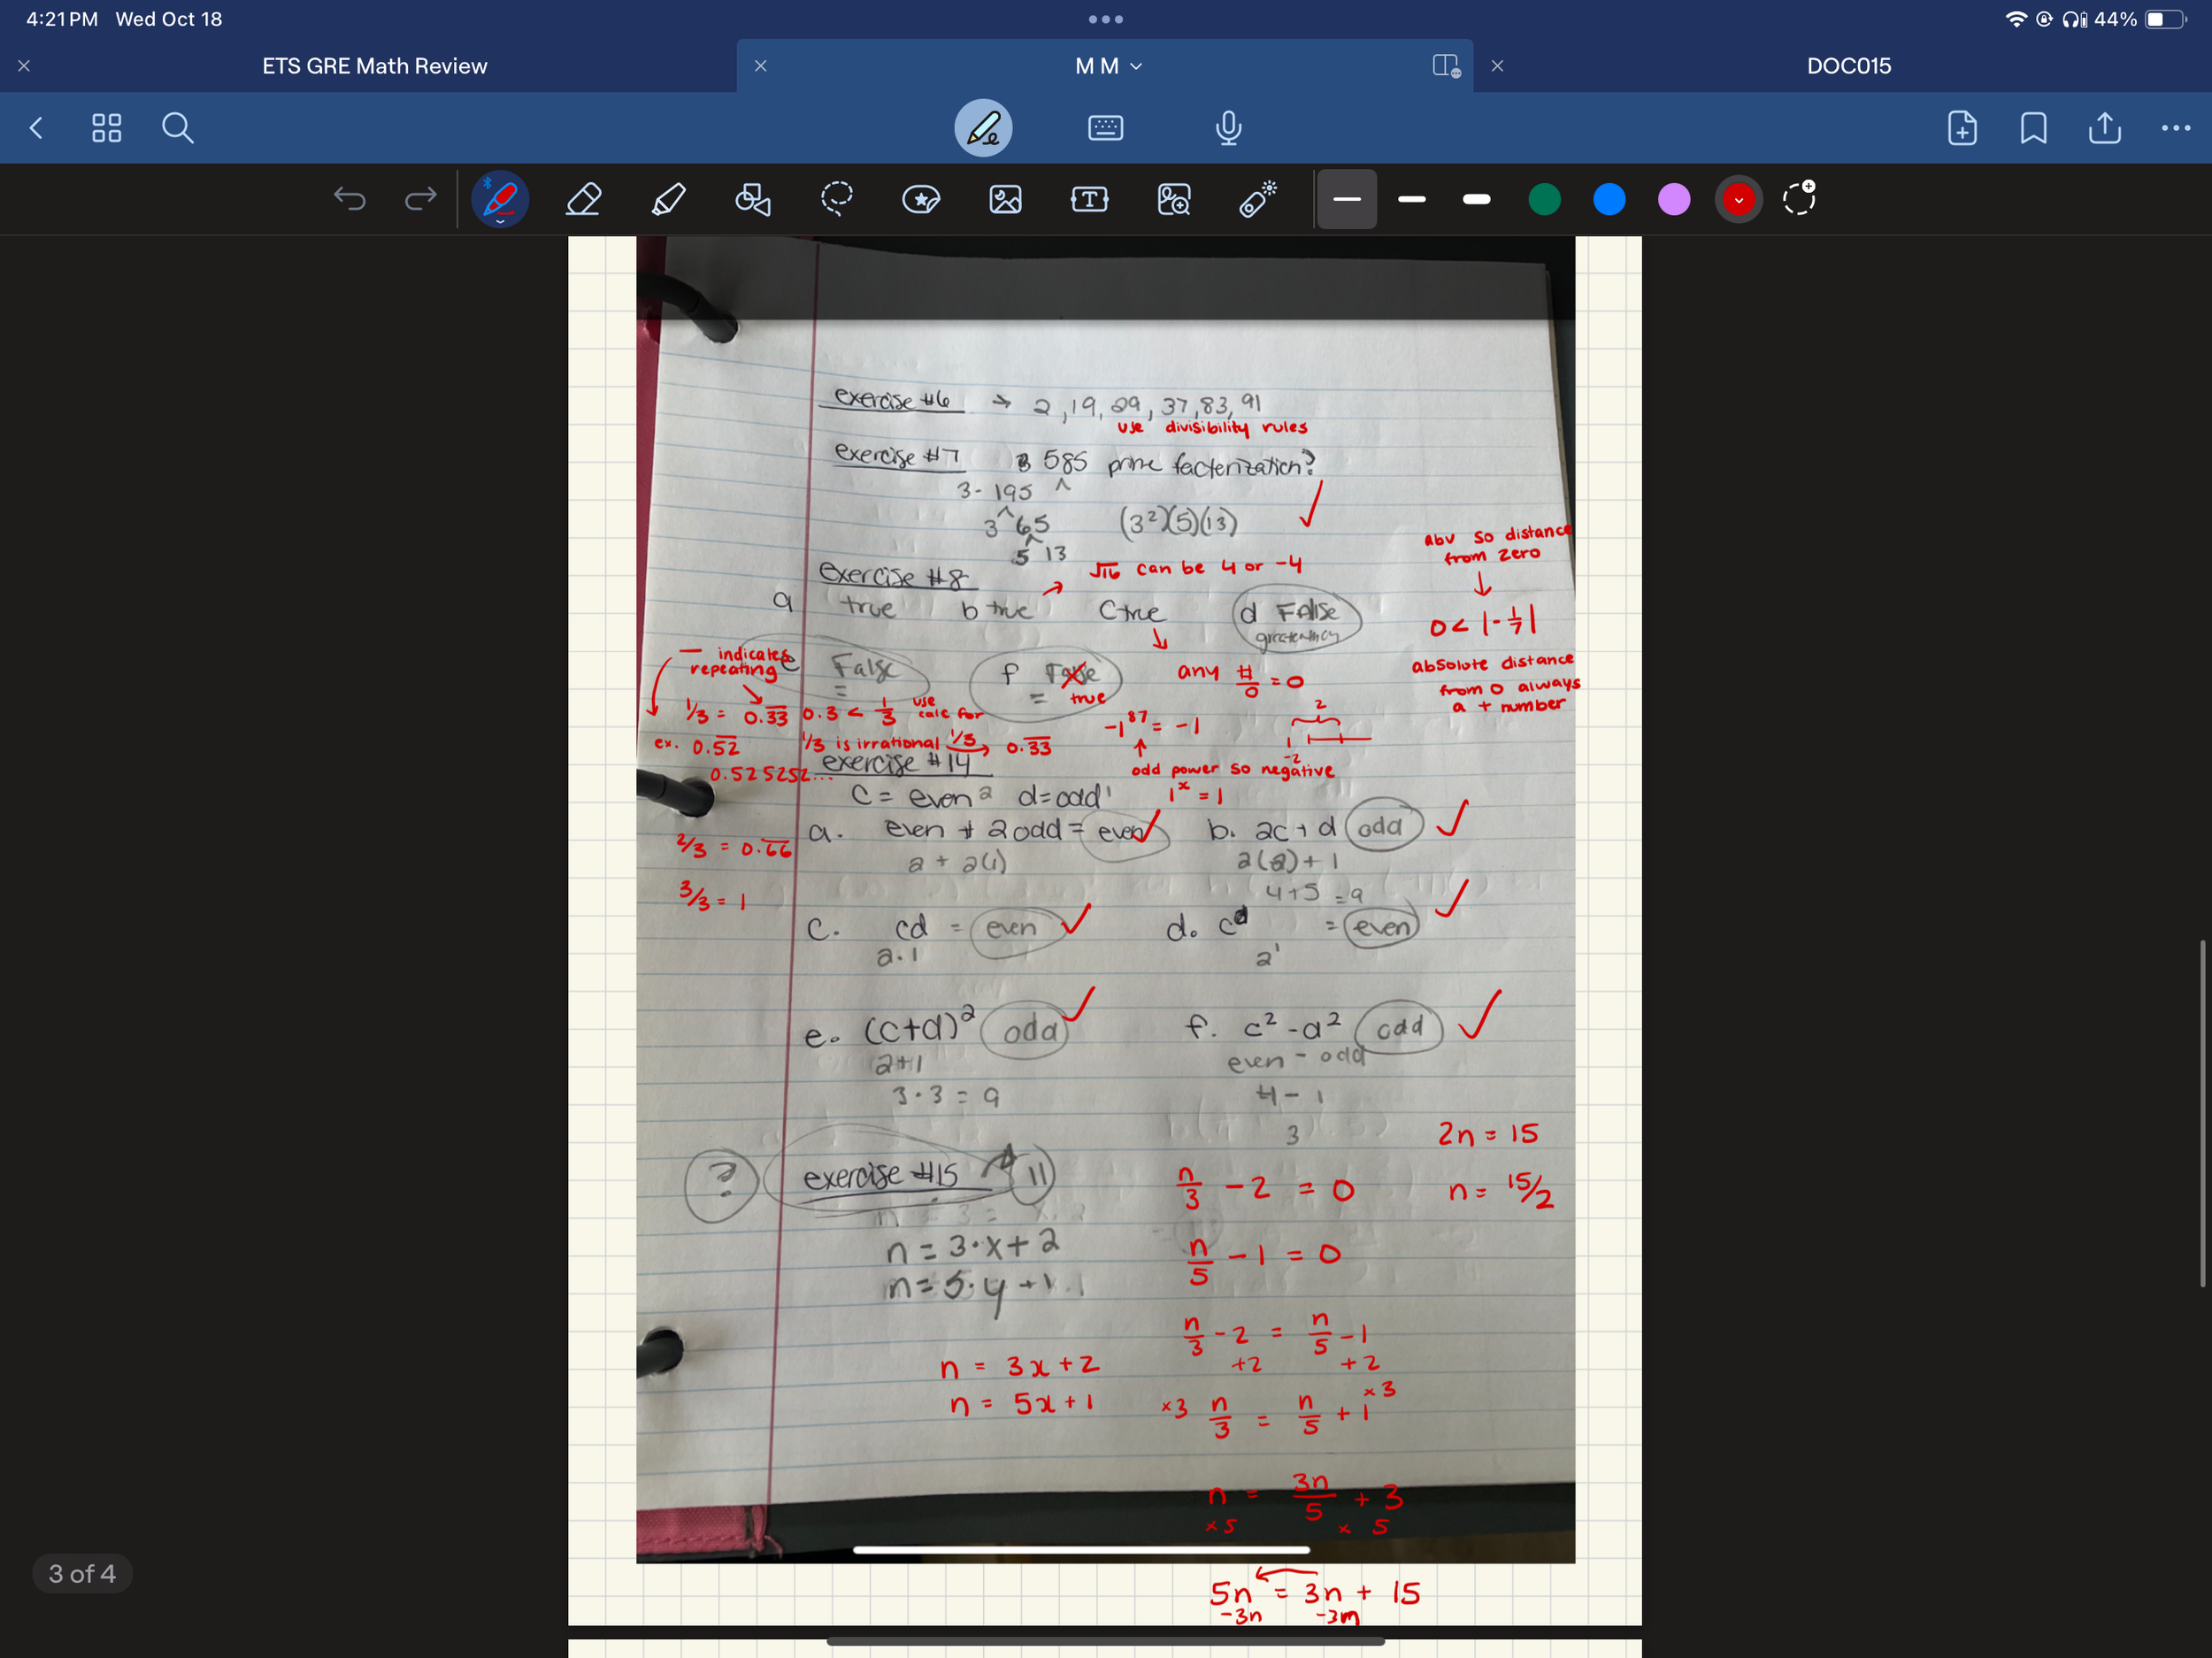 4:21 PM Wed Oct 18
44%
ETS GRE Math Review
M M
DOC015
exercise #6 → 2, 19, 29, 37, 83, 91
use divisibility rules
exercise #7 585 prime facterization?
3 - 195
3 65 (3²)(5)(13)
5 13
abv so distance
from zero
exercise #8
√16 can be 4 or -4
a true b true C true d False
0 < |-1/7|
— indicates
repeating
e False
=
f
= true
any #/0 = 0
absolute distance
from 0 always
a + number
1/3 = 0.33 0.3 < 1/3 use
calc for
-1⁸⁷ = -1
2
-2
ex. 0.52
1/3 is irrational 1/3 → 0.33
0.525252...
odd power so negative
1ˣ = 1
exercise #14
C = even 2 d = odd 1
a. even + 2 odd = even
2 + 2(1)
b. 2c + d odd
2(2) + 1
4+5 = 9
2/3 = 0.66
3/3 = 1
c. cd = even
2.1
d. cᵈ = even
2¹
e. (c+d)² odd
2+1
3·3 = 9
f. c² - d² odd
even - odd
4 - 1
3
?
exercise #15 11
n = 3·x + 2
n = 5·y + 1
n = 3x + 2
n = 5x + 1
n/3 - 2 = 0
n/5 - 1 = 0
n/3 - 2 = n/5 - 1
+2 +2
×3 n/3 = n/5 + 1 ×3
n = 3n/5 + 3
×5 × 5
5n = 3n + 15
-3n -3n
2n = 15
n = 15/2
3 of 4